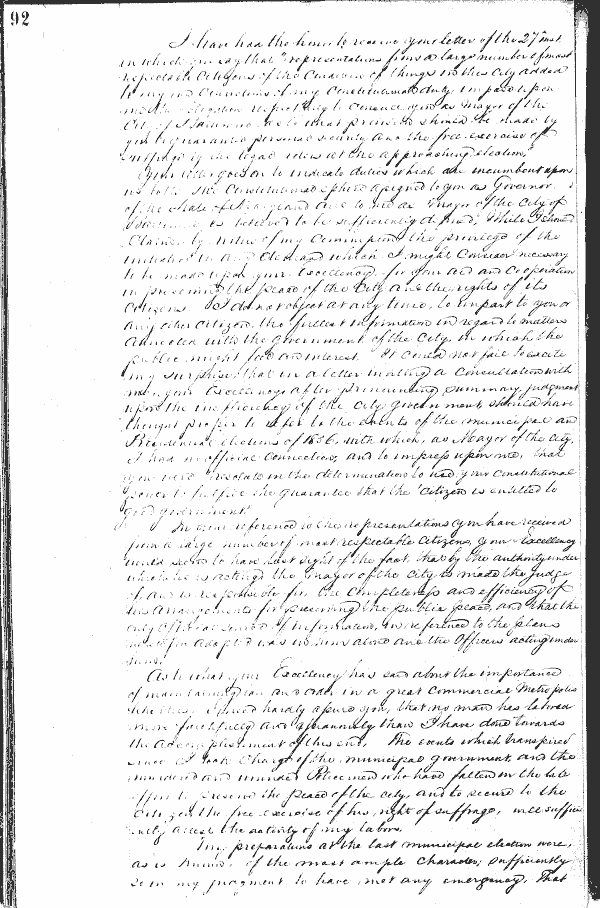 92
I have had the honor to receive your letter of the 27th inst
in which you say that "representations from a large number of most
respectable Citizens of the Condition of things in this City added
to my own Convictions of my Constitutional duty impose upon
me the obligation respectfully to Counsel you as Mayor of the
City of Baltimore as to what provision should be made by
you to guarantee personal security and the free exercise of
suffrage by the legal voters at the approaching election,"
Your letter goes on to indicate duties which are incumbent upon
us both. The Constitutional sphere assigned to you as Governor
of the State of Maryland and to me as Mayor of the City of
Baltimore is believed to be sufficiently defined; While I should
Claim by virtue of my Commission the privilege of the
initiation in any demand which I might Consider necessary
to be made upon your Excellency for your aid and Cooperation
in preserving the peace of the City and the rights of its
Citizens. I do not object at any time, to impart to you or
any other Citizen, the fullest information in regard to matters
Connected with the government of the City, in which the
public might feel an interest. It could not fail to excite
my surprise, that in a letter inviting a Consultation with
me, your Excellency after pronouncing summary judgment
upon the inefficiency of the City government, should have
thought proper to refer to the events of the municipal and
Presidential elections of 1856, with which, as Mayor of the City,
I had no official Connection; and to impress upon me, that
you were resolute in the determination to use your Constitutional
power to fulfil the guarantee that the 'Citizen is entitled to
good government.'
In your reference to the representations you have received
from a large number of most respectable Citizens, your Excellency
would seem to have lost sight of the fact, that by the authority under
which he is acting the Mayor of the City is made the judge
of and is responsible for the Completeness and efficiency of
his arrangements for preserving the public peace, and that the
only source of information, in reference to the plans
adopted was in him alone and the Officers acting under
him.
As to what your Excellency has said about the importance
of maintaining law and order in a great Commercial Metropolis
like this, I need hardly assure you, that no man has labored
more faithfully and assiduously than I have done towards
the accomplishment of this end. The events which transpired
since I took Charge of the municipal government, and the
murdered and wounded Policemen who have fallen in the late
effort to preserve the peace of the City, and to secure to the
Citizen the free exercise of his right of suffrage, will suffici-
ently attest the activity of my labors.
My preparations at the last municipal election were,
as is known, of the most ample Character, sufficiently
so in my judgment to have met any emergency. That